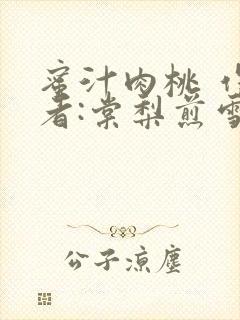 蜜汁肉桃 作
者:棠梨煎雪
公子凉尘